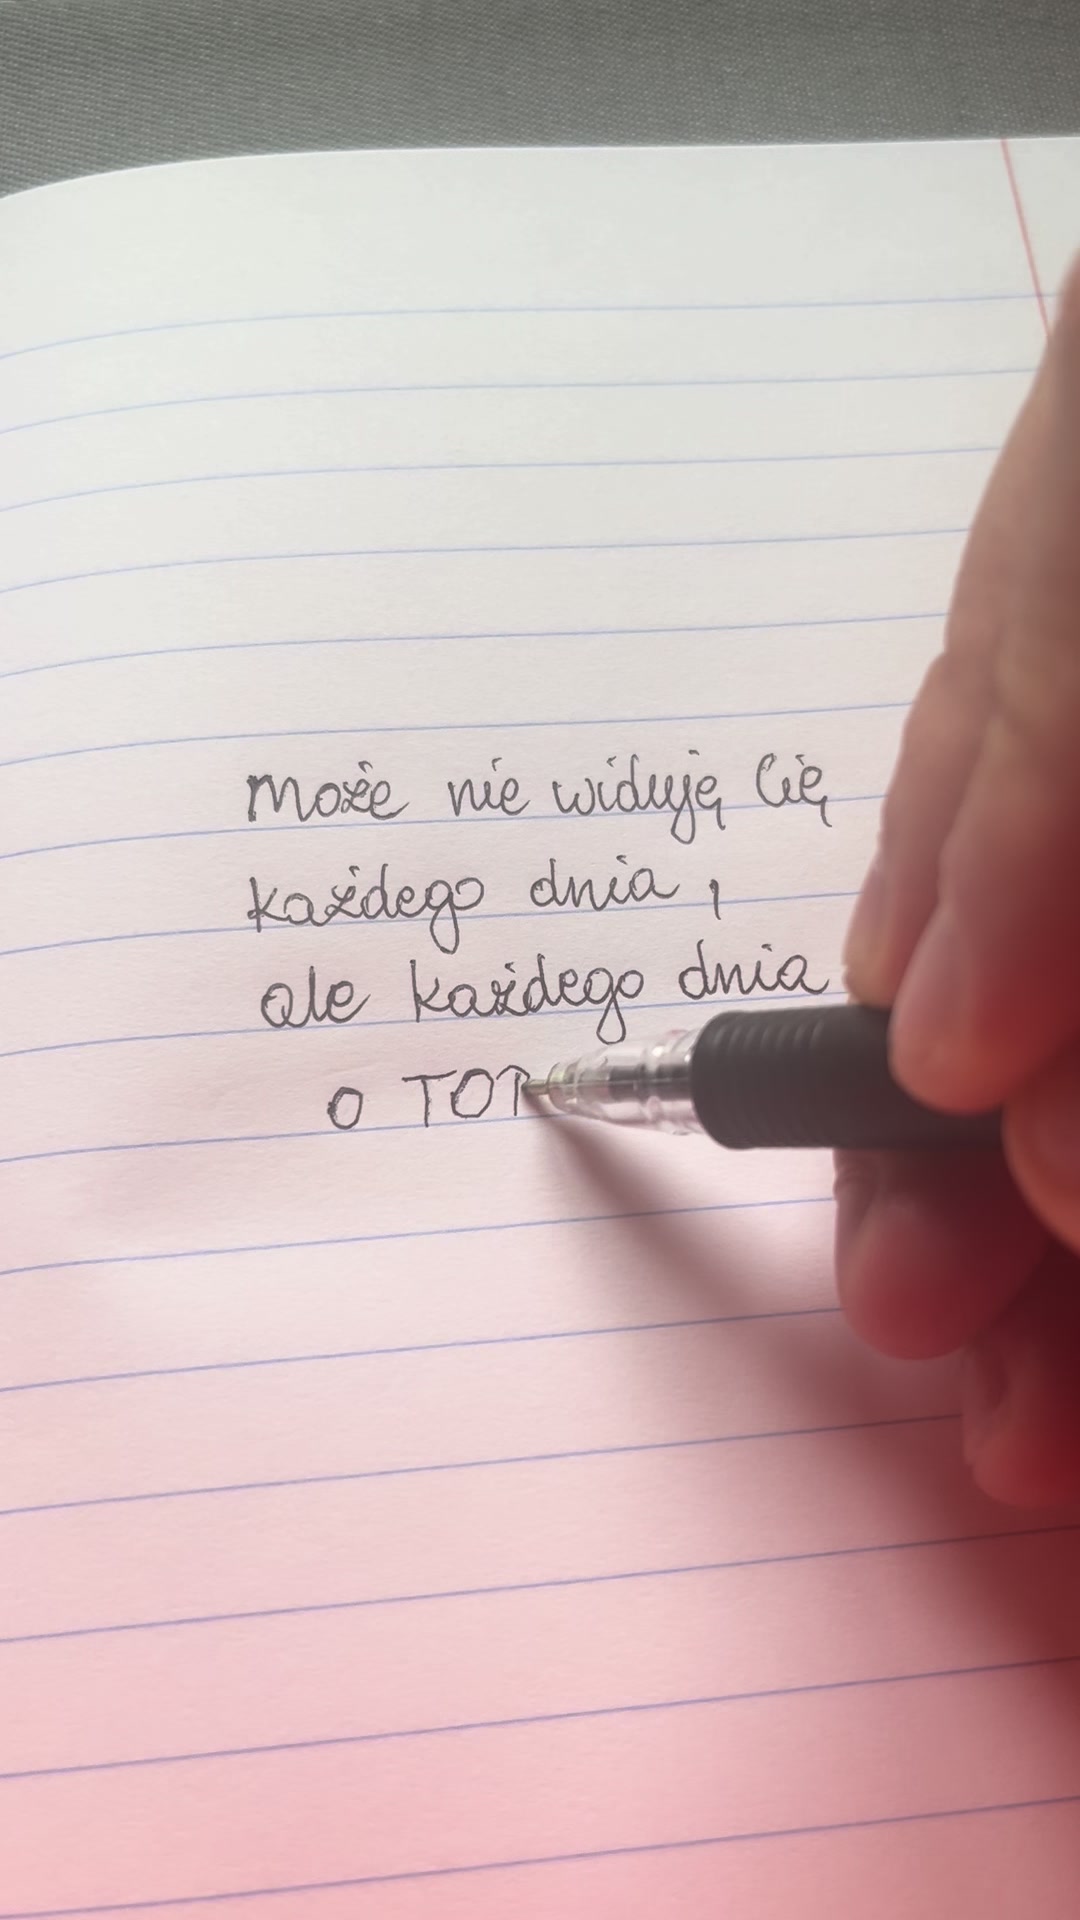 Może nie widuję Cię
każdego dnia,
ale każdego dnia
o